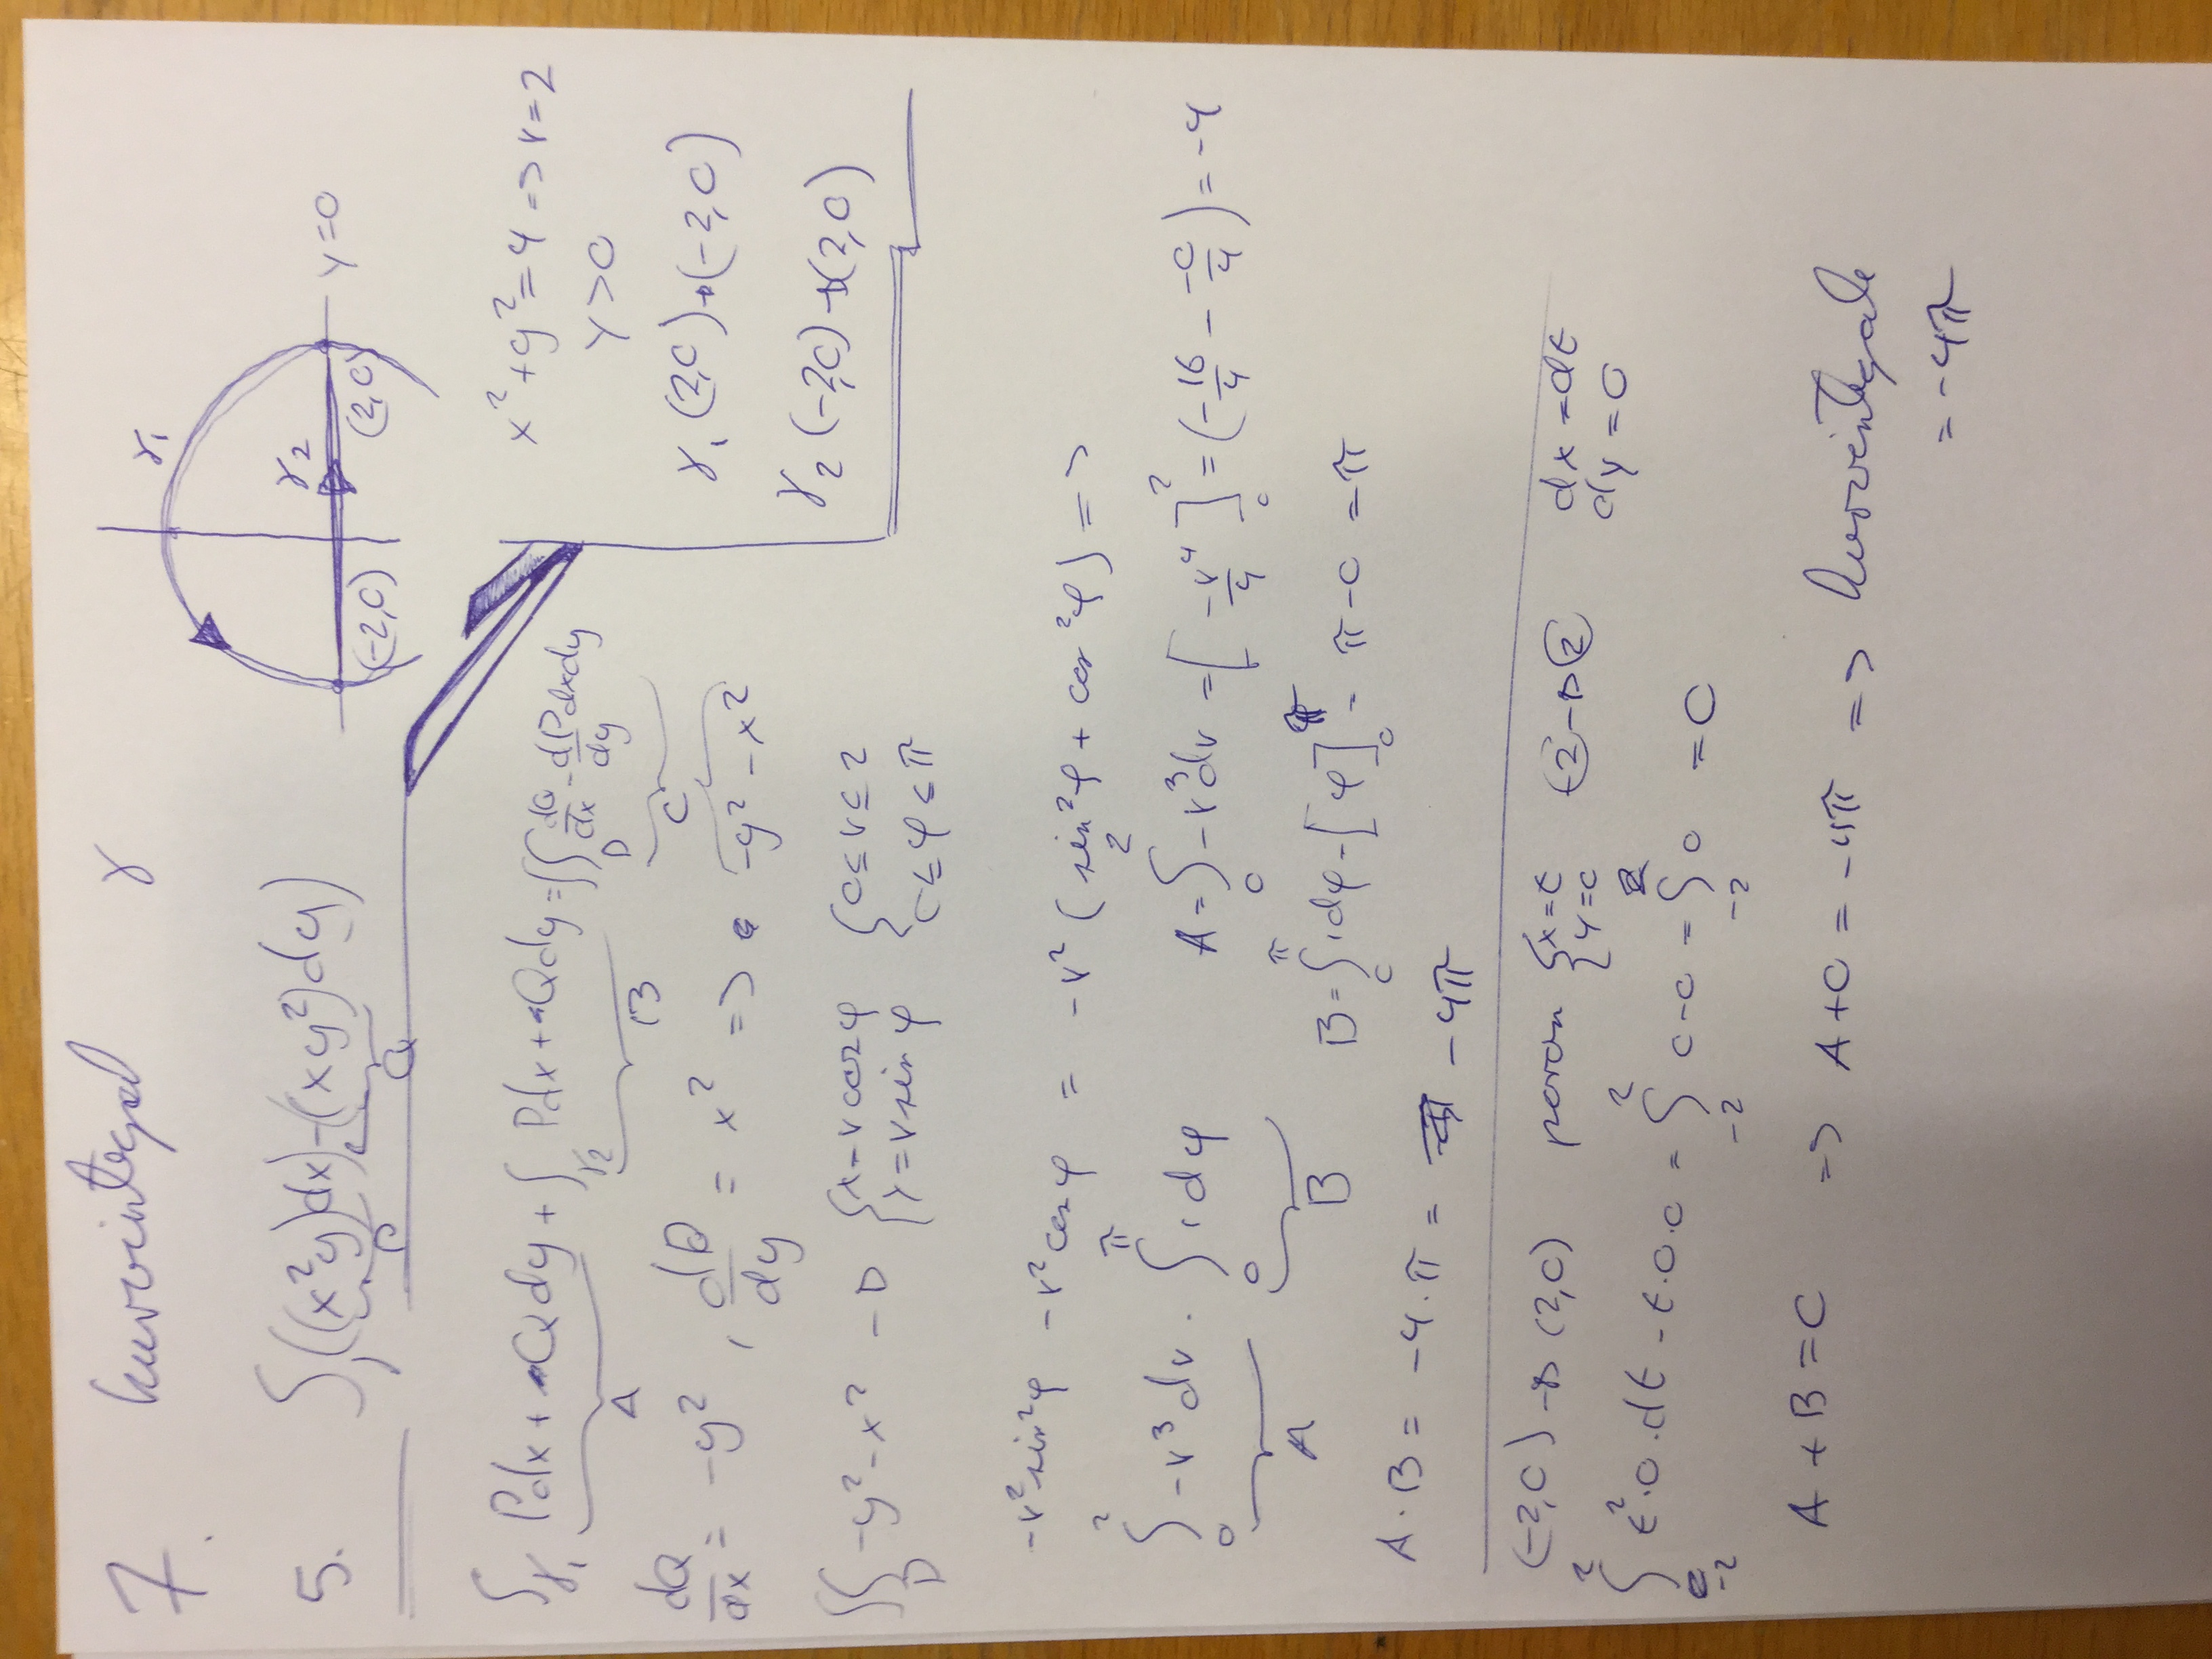 7. kurvintegral γ
γ₁
5. ∫ ((x²y)dx) - (xy²)dy)
P Q
γ₂
y=0
(-2,0) (2,0)
∫γ₁ Pdx + Qdy + ∫γ₂ Pdx + Qdy = ∬D dQ/dx - dP/dy dxdy
A B C
x²+y²=4 => r=2
y>0
γ₁ (2,0)→(-2,0)
γ₂ (-2,0)→(2,0)
dQ/dx = -y², dP/dy = x² => -y²-x²
∬D -y²-x² → {x=r cos φ {0≤r≤2
{y=r sin φ {0≤φ≤π
-r² sin²φ - r² cos φ = -r² (sin²φ + cos²φ) =>
∫₀² -r³dr · ∫₀^π 1dφ
A B
A = ∫₀² -r³dr = [-r⁴/4]₀² = (-16/4 - -0/4) = -4
B = ∫₀^π 1dφ = [φ]₀^π = π-0 = π
A·B = -4·π = -4π
(-2,0) → (2,0) param {x=t -2→2 dx=dt
{y=0 dy=0
∫₋₂² t²·0·dt - t·0·0 = ∫₋₂² 0-0 = ∫₋₂² 0 = 0
A + B = C => A+0 = -4π => kurvintegrale
= -4π